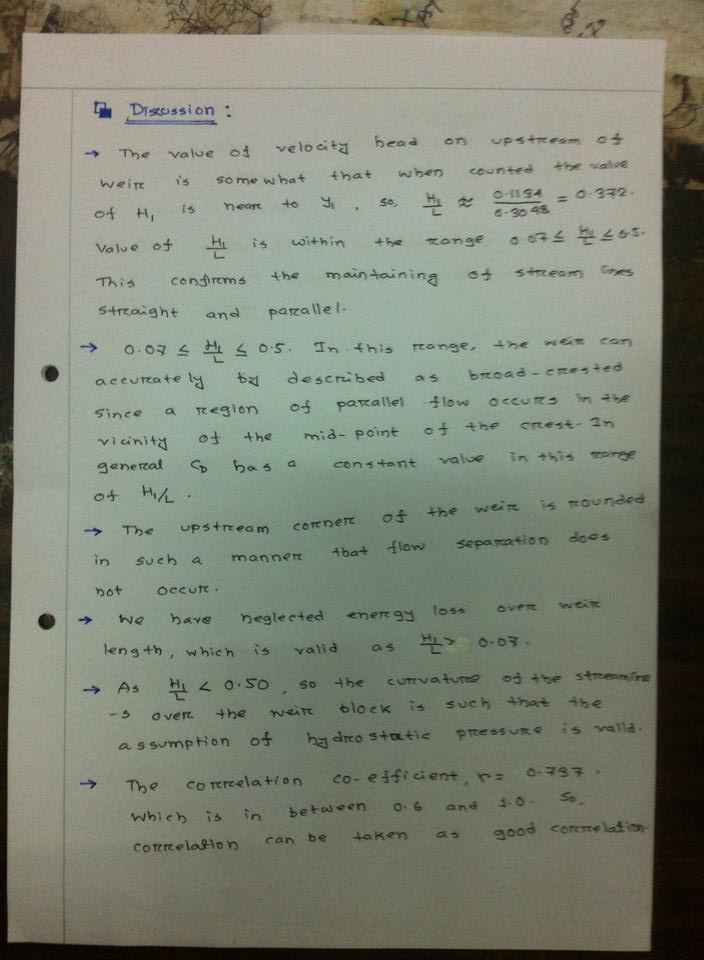 Discussion :
→ The value of velocity head on upstream of
weir is somewhat that when counted the value
of H₁ is near to Y₁, so, H₁/L ≈ 0.1134/0.3048 = 0.372.
Value of H₁/L is within the range 0.07 ≤ H₁/L ≤ 0.5.
This confirms the maintaining of stream lines
straight and parallel.
→ 0.07 ≤ H₁/L ≤ 0.5. In this range, the weir can
accurately by described as broad-crested
since a region of parallel flow occurs in the
vicinity of the mid-point of the crest. In
general CD has a constant value in this range
of H₁/L.
→ The upstream corner of the weir is rounded
in such a manner that flow separation does
not occur.
→ We have neglected energy loss over weir
length, which is valid as H₁/L > 0.07.
→ As H₁/L < 0.50, so the curvature of the streamline
-s over the weir block is such that the
assumption of hydrostatic pressure is valid.
→ The correlation co-efficient, r = 0.797.
which is in between 0.6 and 1.0. So,
correlation can be taken as good correlation